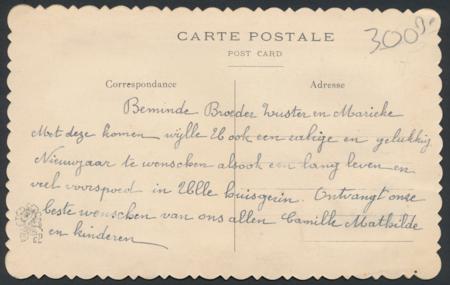 CARTE POSTALE
POST CARD
300
Correspondance
Adresse
Beminde Broeder Zuster en Marieke
Met deze komen wijlle Ul ook een zalige en gelukkig
Nieuwjaar te wenschen alsook een lang leven en
veel voorspoed in Ulle huisgezin. Ontvangt onze
beste wenschen van ons allen Camille Mathilde
en kinderen